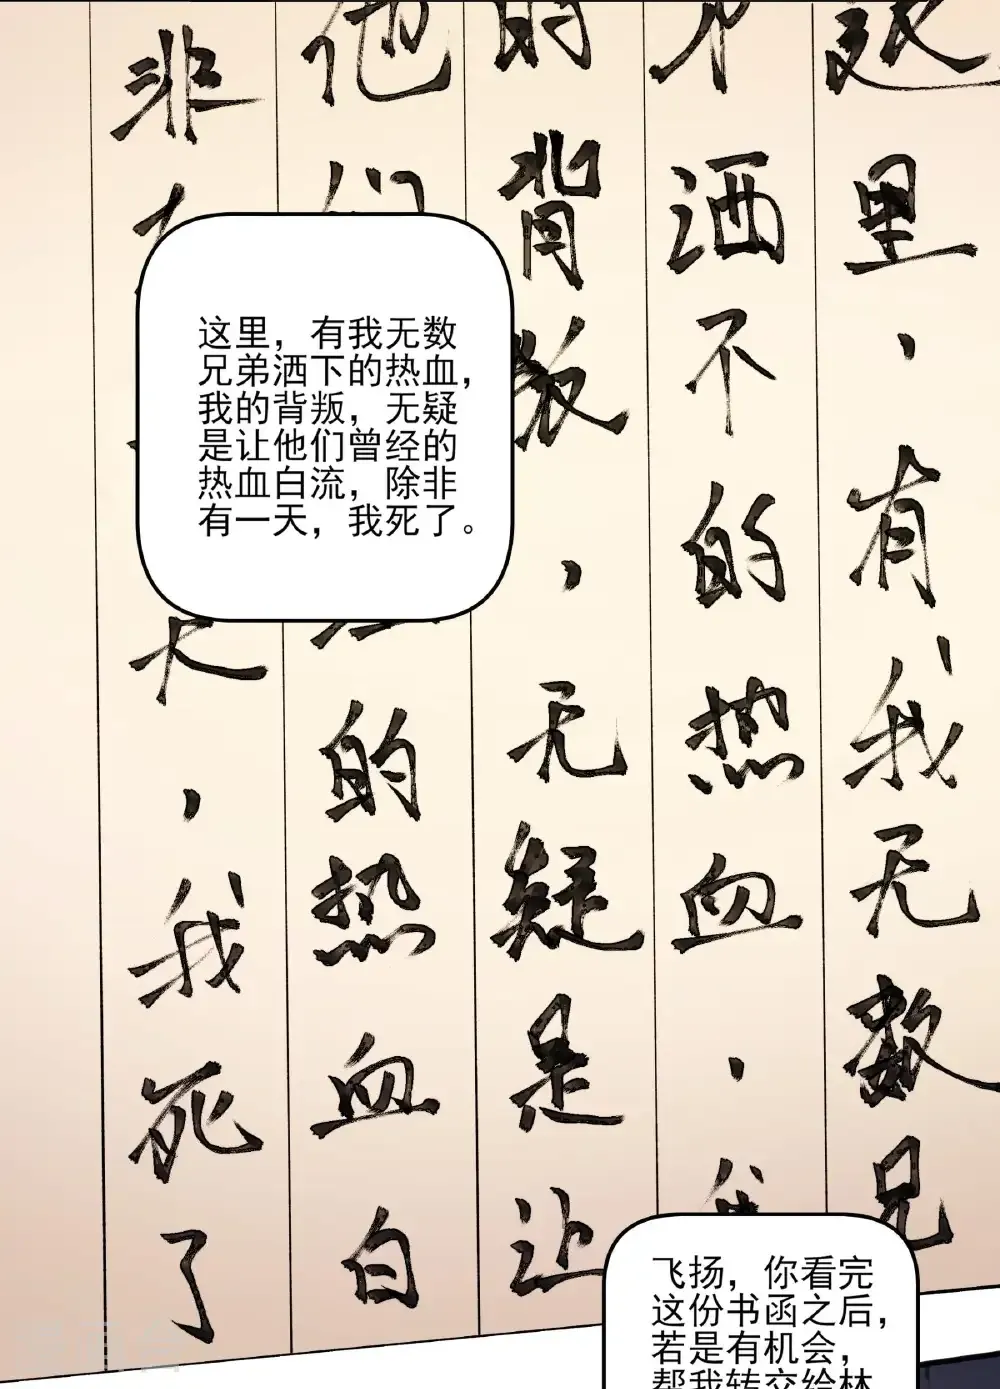 这里，有我无数兄
不洒不的热血，我
的背叛，无疑是让
他们的热血白
非天，我死了
这里，有我无数
兄弟洒下的热血，
我的背叛，无疑
是让他们曾经的
热血白流，除非
有一天，我死了。
飞扬，你看完
这份书函之后，
若是有机会，
帮我转交给林